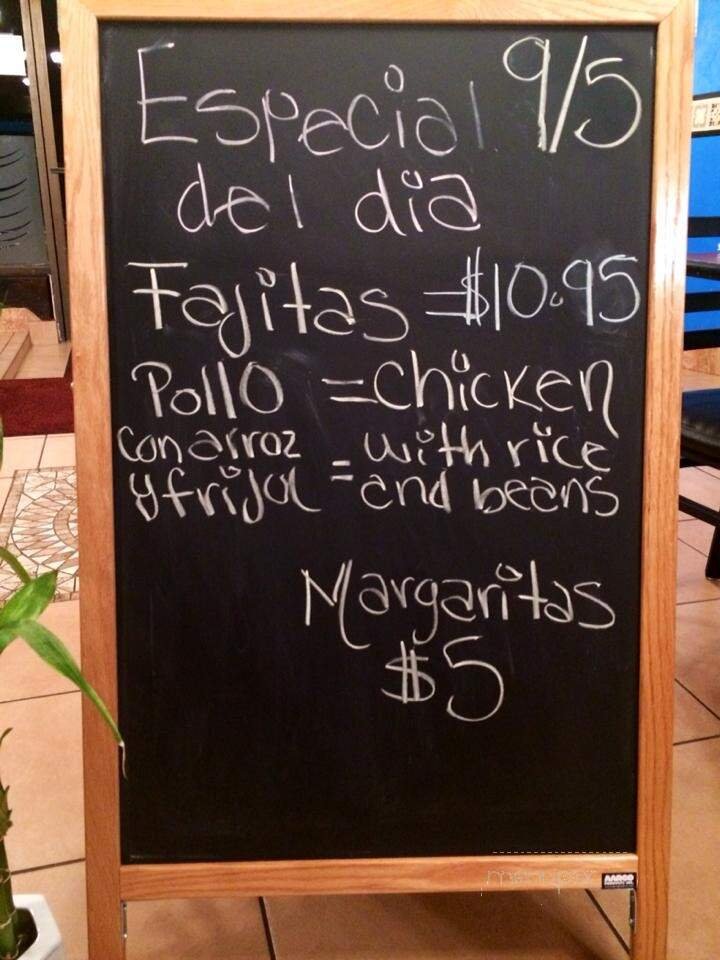 Especial 9/5
del dia
Fajitas =$10.95
Pollo = Chicken
con arroz = with rice
y frijol and beans
Margaritas
$5
AARCO